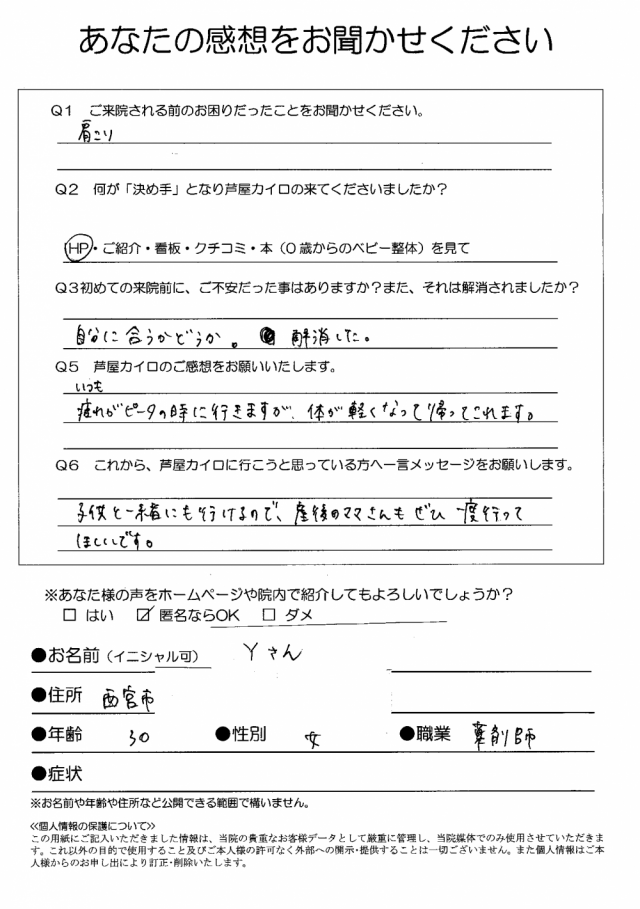 あなたの感想をお聞かせください
Q1 ご来院される前のお困りだったことをお聞かせください。
肩こり
Q2 何が「決め手」となり芦屋カイロの来てくださいましたか？
HP・ご紹介・看板・クチコミ・本（0歳からのベビー整体）を見て
Q3初めての来院前に、ご不安だった事はありますか？また、それは解消されましたか？
自分に合うかどうか。 解消した。
Q5 芦屋カイロのご感想をお願いいたします。
いつも
疲れがピークの時に行きますが、体が軽くなって帰ってこれます。
Q6 これから、芦屋カイロに行こうと思っている方へ一言メッセージをお願いします。
子供と一緒にも行けるので、産後のママさんもぜひ一度行って
ほしいです。
※あなた様の声をホームページや院内で紹介してもよろしいでしょうか？
□ はい ☑ 匿名ならOK □ ダメ
●お名前（イニシャル可） Yさん
●住所 西宮市
●年齢 30 ●性別 女 ●職業 薬剤師
●症状
※お名前や年齢や住所など公開できる範囲で構いません。
≪個人情報の保護について≫
この用紙にご記入いただきました情報は、当院の貴重なお客様データとして厳重に管理し、当院媒体でのみ使用させていただきま
す。これ以外の目的で使用すること及びご本人様の許可なく外部への開示・提供することは一切ございません。また個人情報はご本
人様からのお申し出により訂正・削除いたします。